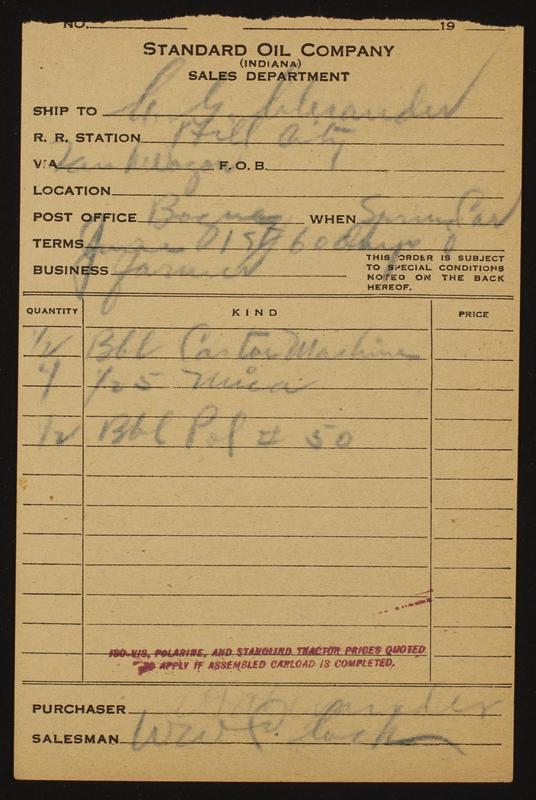 NO. 19
STANDARD OIL COMPANY
(INDIANA)
SALES DEPARTMENT
SHIP TO C. G. Alexander
R. R. STATION Hill City
VIA F. O. B.
LOCATION
POST OFFICE Bogue WHEN Spring Car
TERMS June 1st 60 days
BUSINESS farmer
THIS ORDER IS SUBJECT
TO SPECIAL CONDITIONS
NOTED ON THE BACK
HEREOF.
QUANTITY KIND PRICE
1/2 Bbl Castor Machine
4 1/25 Mica
1/2 Bbl Pol # 50
ISO-VIS, POLARINE, AND STANOLIND TRACTOR PRICES QUOTED
TO APPLY IF ASSEMBLED CARLOAD IS COMPLETED.
PURCHASER
SALESMAN